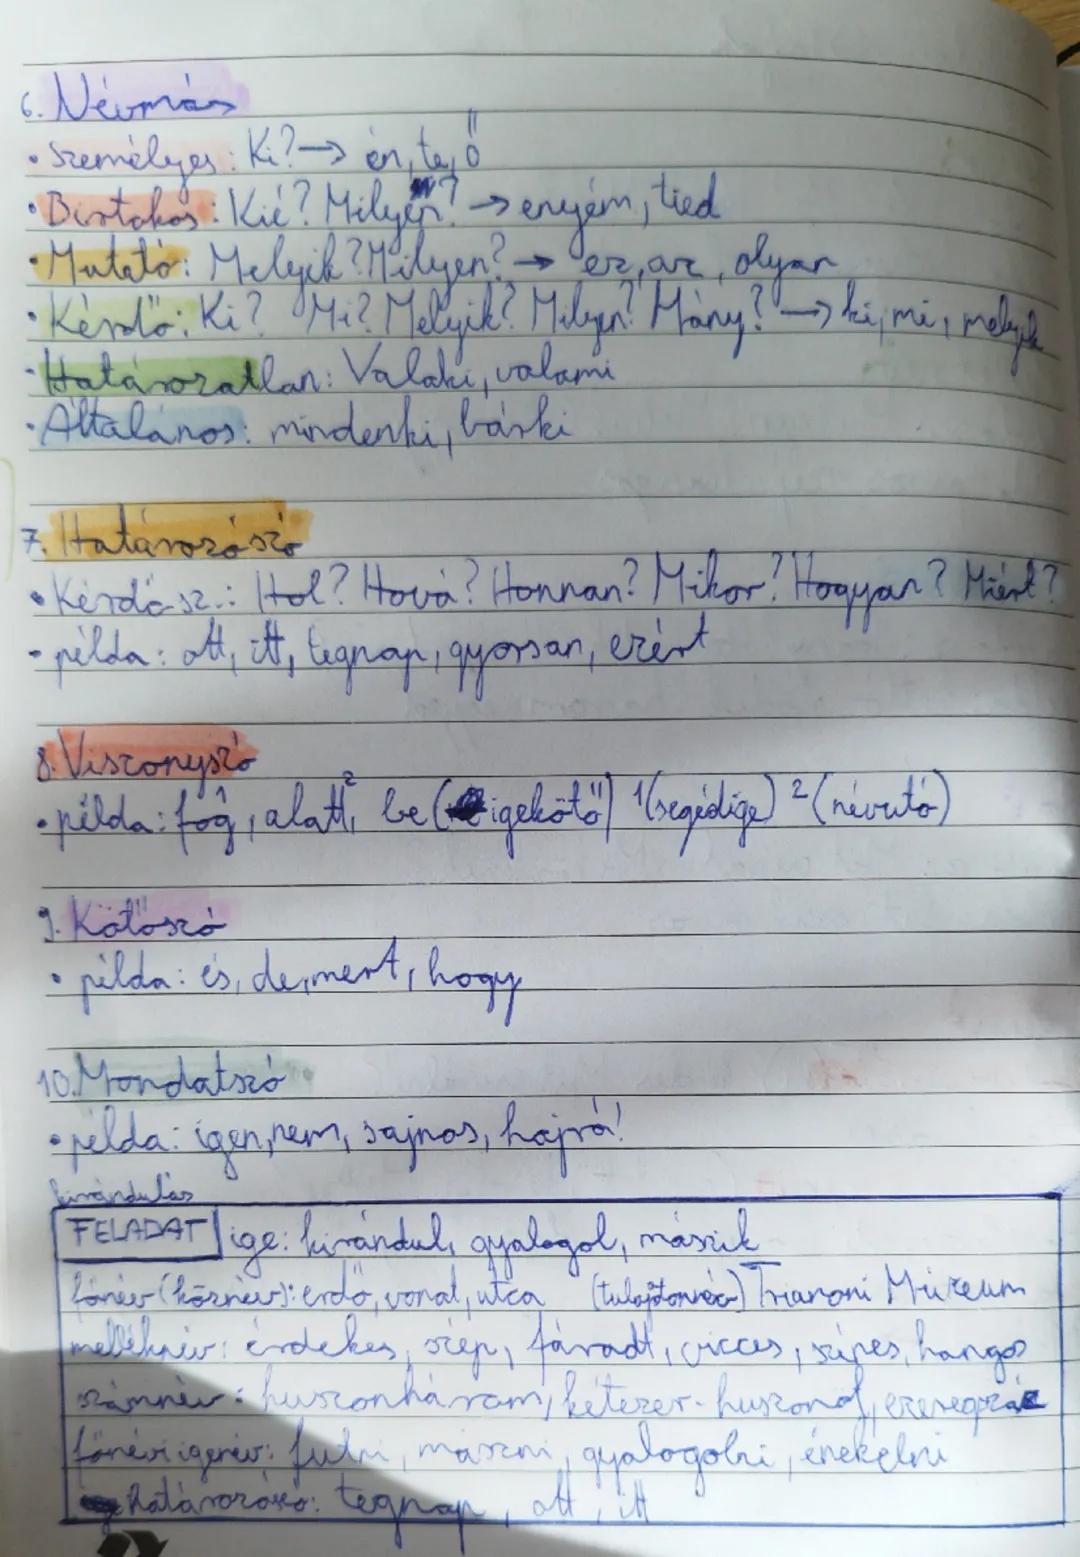 6. Névmás
• Személyes: Ki? → én, te, ő
• Birtokos: Kié? Milyen? → enyém, tied
• Mutató: Melyik? Milyen? → ez, az, olyan
• Kérdő: Ki? Mi? Melyik? Milyen? Hány? → ki, mi, melyik
• Határozatlan: Valaki, valami
• Általános: mindenki, bárki
7. Határozószó
• Kérdő sz.: Hol? Hová? Honnan? Mikor? Hogyan? Miért?
• példa: ott, itt, tegnap, gyorsan, ezért
8. Viszonyszó
• példa: fog¹, alatt², be (igekötő) ¹(segédige) ²(névutó)
9. Kötőszó
• példa: és, de, mert, hogy
10. Mondatszó
• példa: igen, nem, sajnos, hajrá!
kirándulás
FELADAT ige: kirándul, gyalogol, mászik
főnév (köznév): erdő, vonat, utca (tulajdonnév) Trianoni Múzeum
melléknév: érdekes, szép, fáradt, vicces, színes, hangos
számnév: huszonhárom, kétezer-huszonöt,
főnévi igenév: futni, mászni, gyalogolni, énekelni
határozószó: tegnap, ott, itt